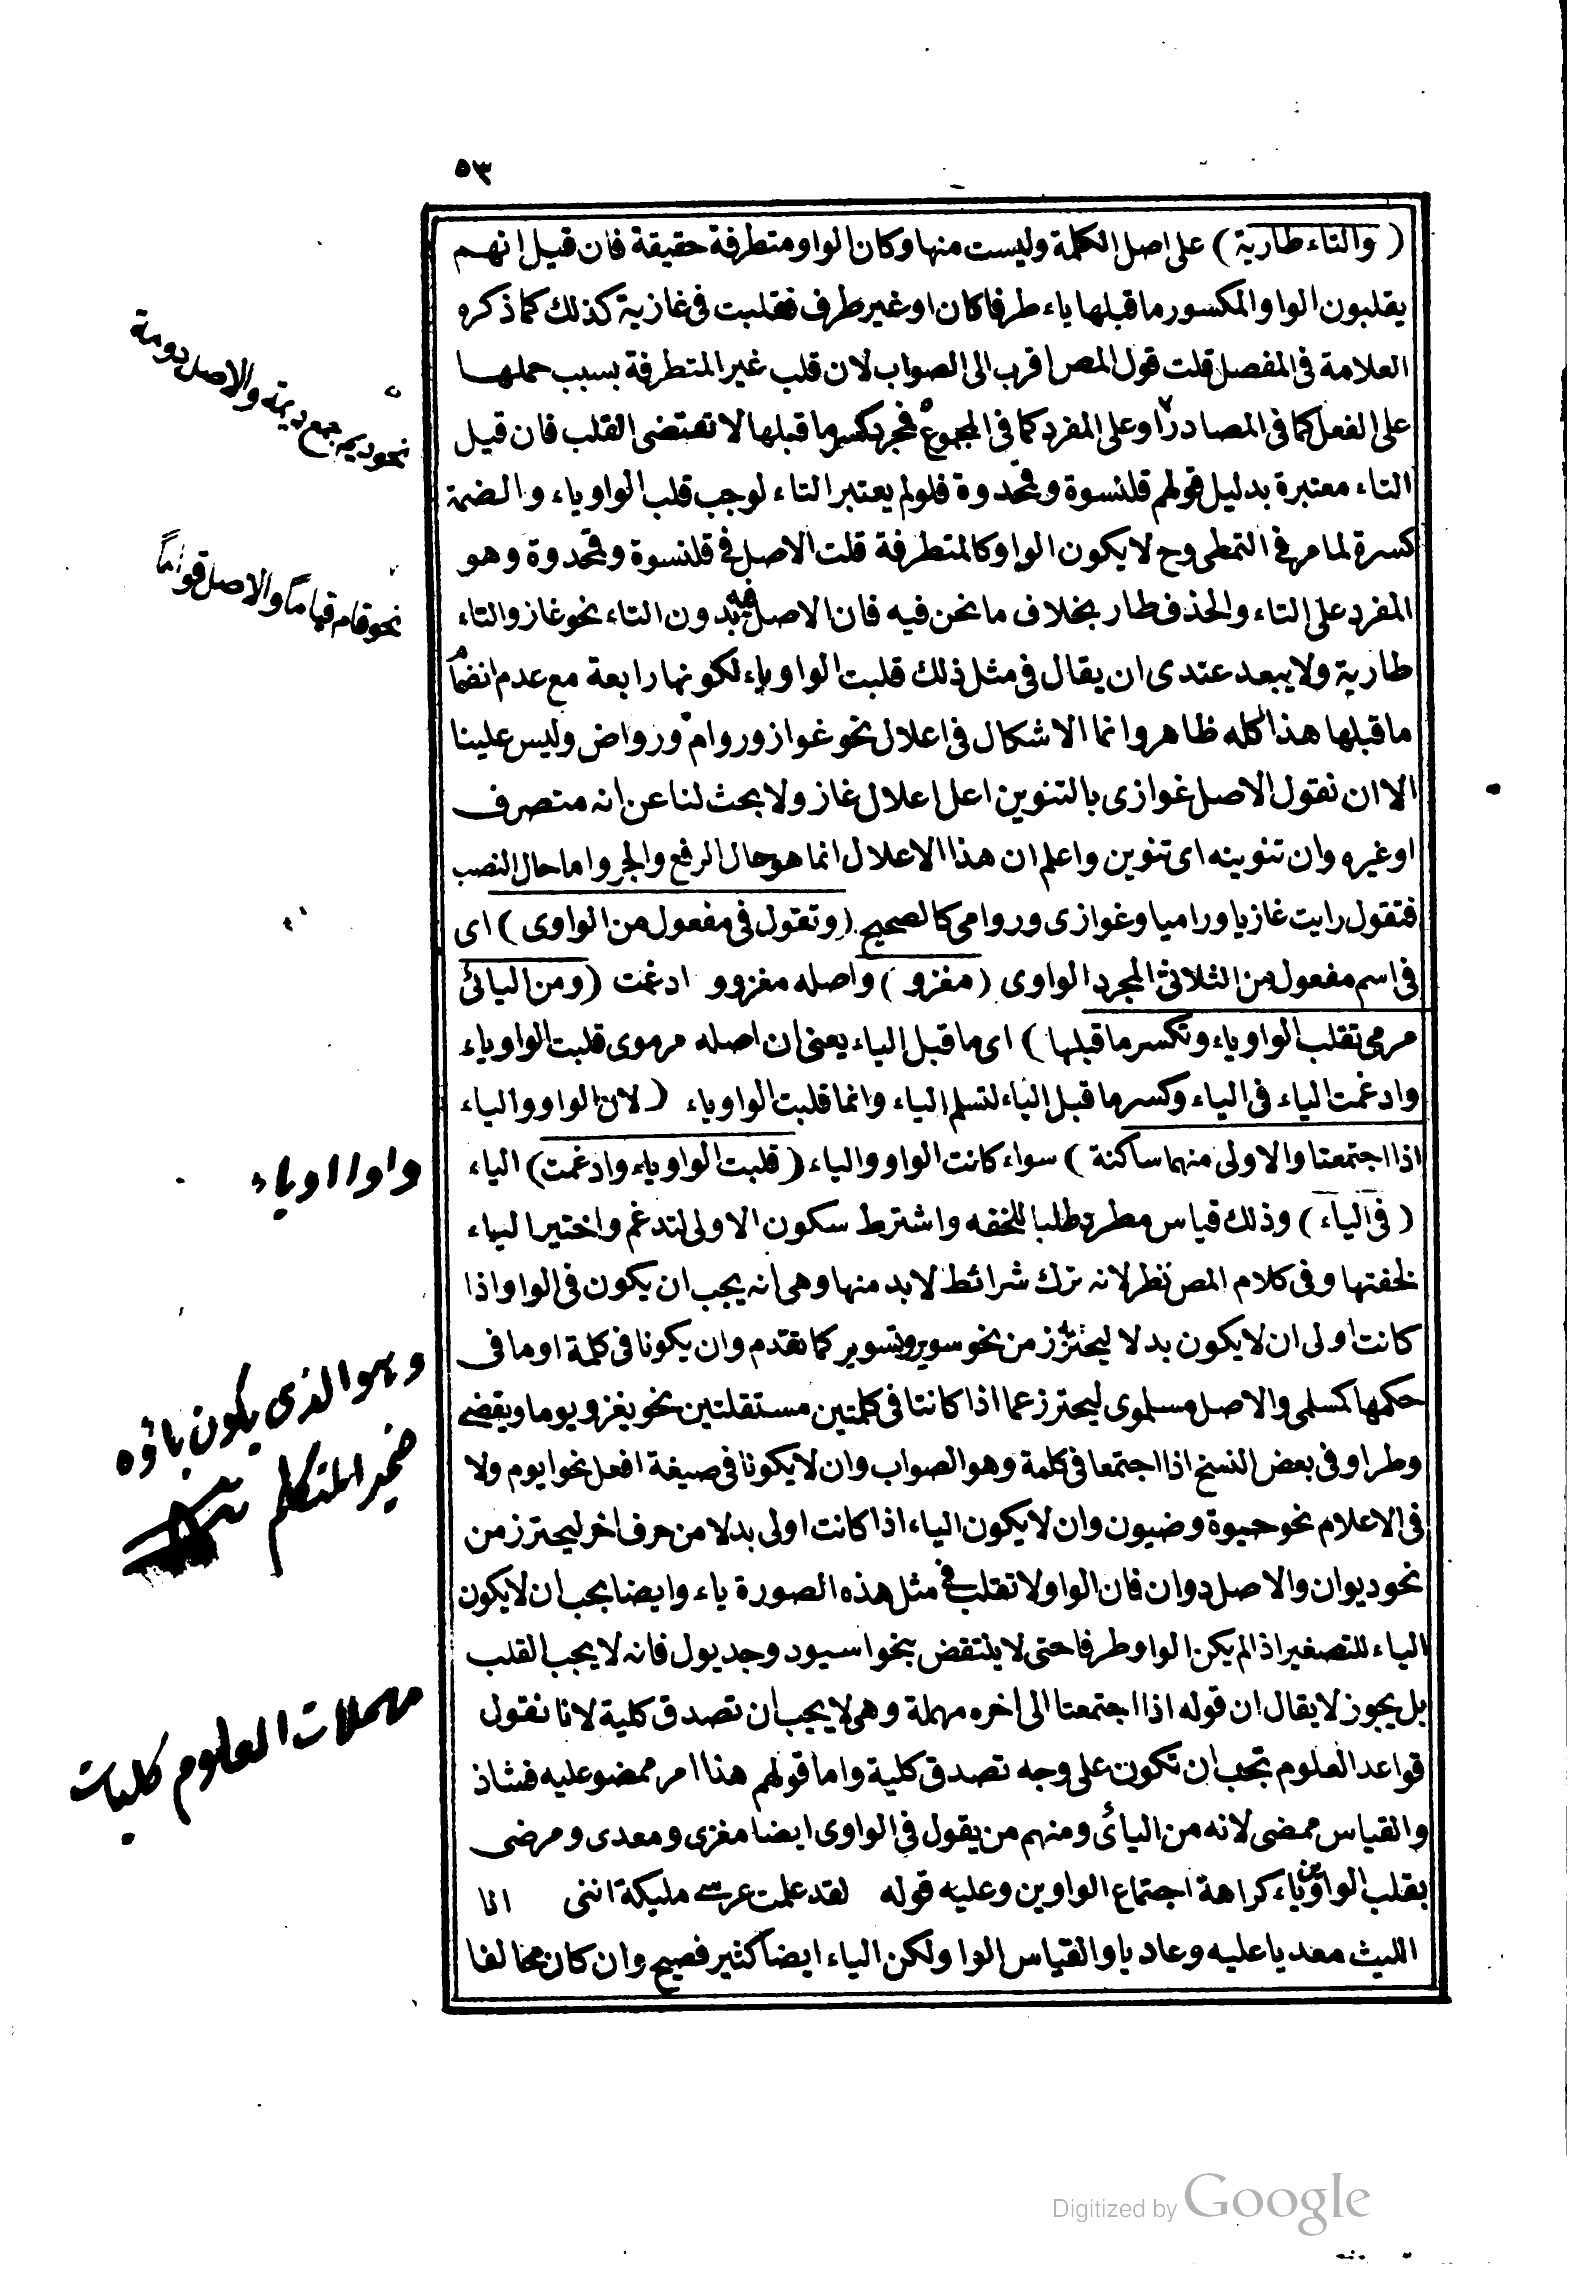 ٥٣
( والتاء طارية ) على اصل الكلمة وليست منها وكان الواو متطرفة حقيقة فان قيل انهم
يقلبون الواو المكسور ما قبلها ياء طرفا كان او غير طرف فقلبت فى غازية كذلك كما ذكره
العلامة فى المفصل قلت قول المص اقرب الى الصواب لان قلب غير المتطرفة بسبب حملها
على الفعل كما فى المصادر او على المفرد كما فى المجموع فمجرد كسر ما قبلها لا تقتضى القلب فان قيل
التاء معتبرة بدليل قولهم قلنسوة وقمحدوة فلو لم يعتبر التاء لوجب قلب الواو ياء والضمة
كسرة لما مر فى التمطى وح لا يكون الواو كالمتطرفة قلت الاصل فى قلنسوة وقمحدوة وهو
المفرد على التاء والحذف طار بخلاف ما نحن فيه فان الاصل فيه بدون التاء نحو غاز والتاء
طارية ولا يبعد عندى ان يقال فى مثل ذلك قلبت الواو ياء لكونها رابعة مع عدم انضمام
ما قبلها هذا كله ظاهر وانما الاشكال فى اعلال نحو غواز وروام ورواض وليس علينا
الا ان نقول الاصل غوازى بالتنوين اعل اعلال غاز ولا بحث لنا عن انه متصرف
او غيره وان تنوينه اى تنوين واعلم ان هذا الاعلال انما هو حال الرفع والجر واما حال النصب
فتقول رايت غازيا وراميا وغوازى وروامى كالصحيح ( وتقول فى مفعول من الواوى ) اى
فى اسم مفعول من الثلاثى المجرد الواوى ( مغزو ) واصله مغزوو ادغمت ( ومن اليائى
مرمى تقلب الواو ياء وتكسر ما قبلها ) اى ما قبل الياء يعنى ان اصله مرموى قلبت الواو ياء
وادغمت الياء فى الياء وكسر ما قبل الياء لتسلم الياء وانما قلبت الواو ياء ( لان الواو والياء
اذا اجتمعتا والاولى منهما ساكنة ) سواء كانت الواو والياء ( قلبت الواو ياء وادغمت ) الياء
( فى الياء ) وذلك قياس مطرد طلبا للخفه واشترط سكون الاولى لتدغم واختير الياء
لخفتها وفى كلام المص نظر لانه ترك شرائط لابد منها وهى انه يجب ان يكون فى الواو اذا
كانت اولى ان لا يكون بدلا ليحترز من نحو سوير وتسوير كما تقدم وان يكونا فى كلمة او ما فى
حكمها كمسلمى والاصل مسلموى ليحترز عما اذا كانتا فى كلمتين مستقلتين نحو يغزو يوما ويقضى
وطرا وفى بعض النسخ اذا اجتمعا فى كلمة وهو الصواب وان لا يكونا فى صيغة افعل نحو ايوم ولا
فى الاعلام نحو حيوة وضيون وان لا يكون الياء اذا كانت اولى بدلا من حرف اخر ليحترز من
نحو ديوان والاصل دوان فان الواو لا تقلب فى مثل هذه الصورة ياء وايضا يجب ان لا يكون
الياء للتصغير اذا لم يكن الواو طرفا حتى لا ينتقض بنحو اسيود وجديول فانه لا يجب القلب
بل يجوز لا يقال ان قوله اذا اجتمعتا الى اخره مهملة وهى لا يجب ان تصدق كلية لانا نقول
قواعد العلوم تجب ان تكون على وجه تصدق كلية واما قولهم هذا امر ممضو عليه فشاذ
والقياس ممضى لانه من اليائى ومنهم من يقول فى الواوى ايضا مغزى ومعدى ومرضى
بقلب الواوين ياء كراهة اجتماع الواوين وعليه قوله لقد علمت عرسى مليكة اننى انا
الليث معديا عليه وعاديا والقياس الواو ولكن الياء ايضا كثير فصيح وان كان مخالفا
نحو ديم جمع ديمة والاصل دومة
نحو قام قياماً والاصل قواماً
واوا او ياء
وهو الذى يكون ياؤه
ضمير المتكلم
مهملات العلوم كليات
Digitized by Google